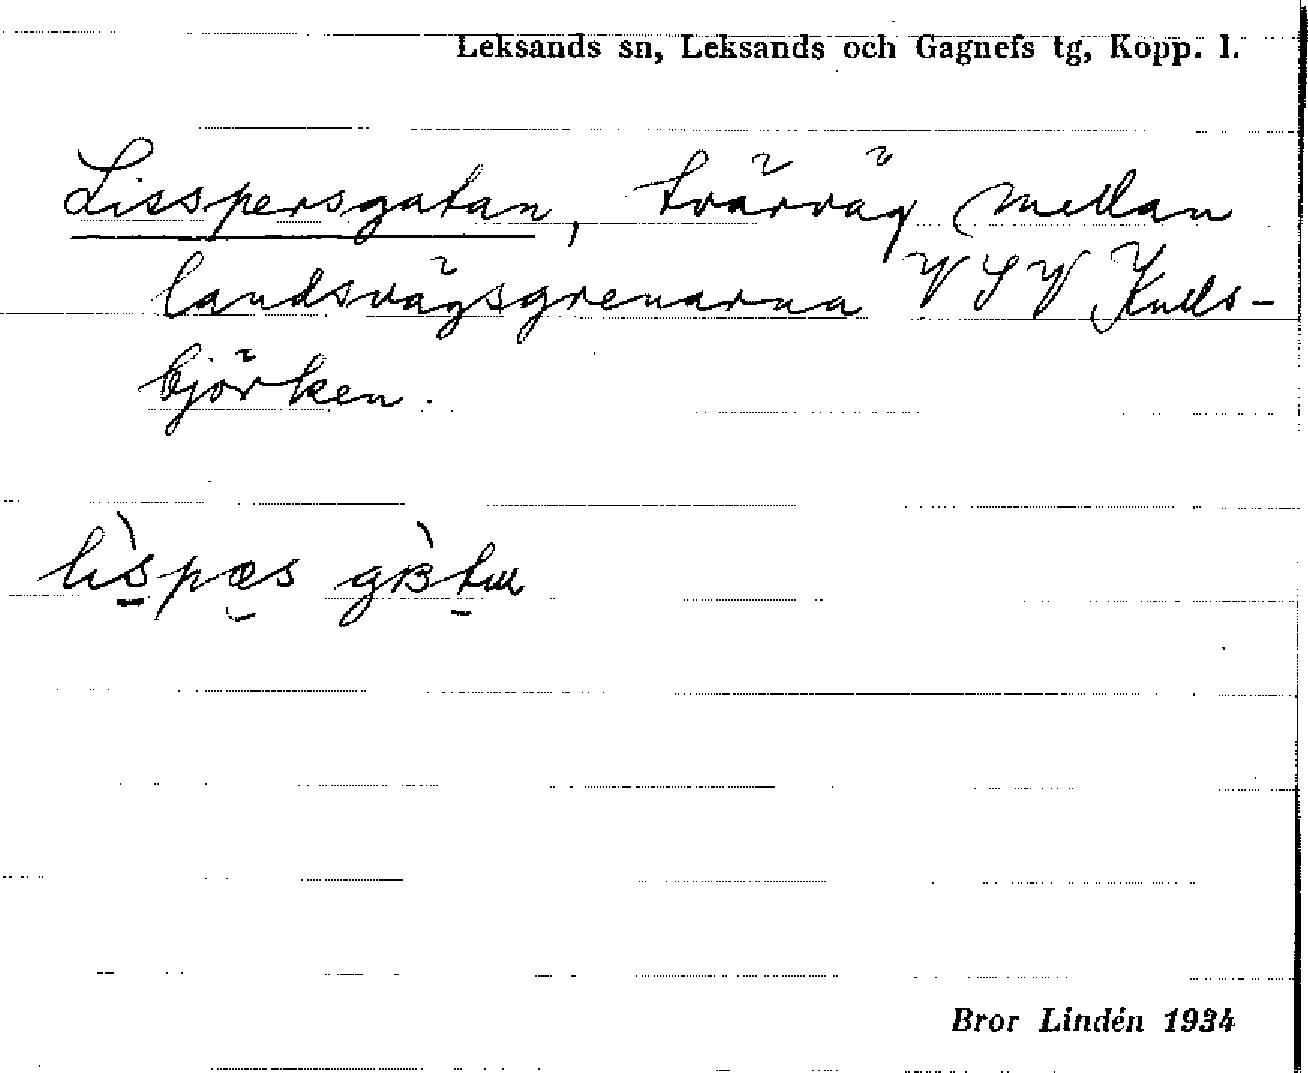 Leksands sn, Leksands och Gagnefs tg, Kopp. l.
Lisspersgatan, tvärväg mellan
landsvägsgrenarna VSV Knds-
björken.
Bror Lindén 1934